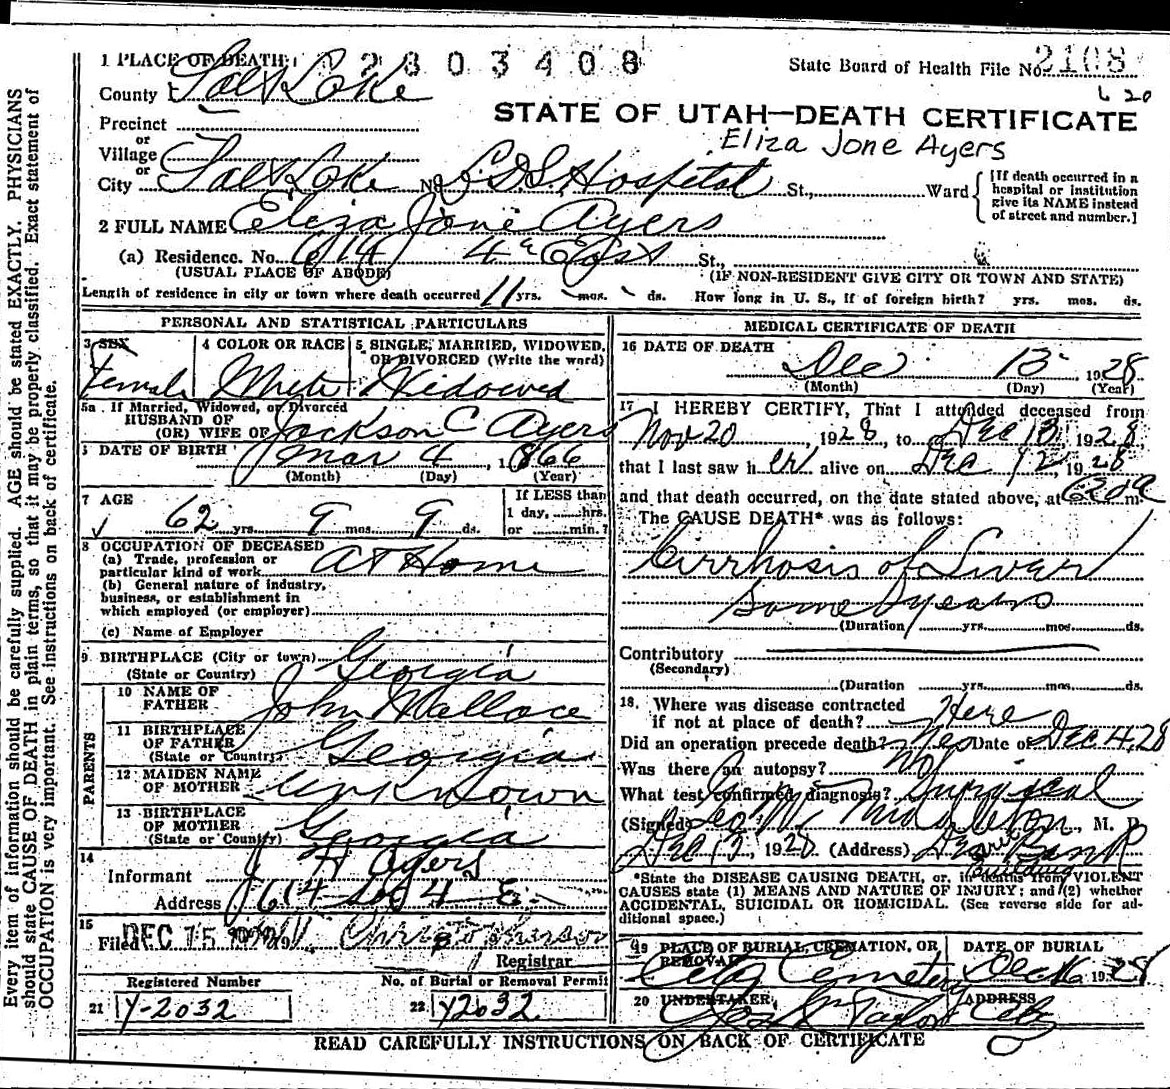 1 PLACE OF DEATH: 2803408
State Board of Health File No. 2108
County Salt Lake
620
STATE OF UTAH—DEATH CERTIFICATE
Precinct
or
Village
or
Eliza Jone Ayers
City Salt Lake No. L.D.S. Hospital St., Ward
[If death occurred in a hospital or institution give its NAME instead of street and number.]
2 FULL NAME Eliza Jone Ayers
(a) Residence. No. 614 4th East St.,
(USUAL PLACE OF ABODE) (IF NON-RESIDENT GIVE CITY OR TOWN AND STATE)
Length of residence in city or town where death occurred 11 yrs. mos. ds. How long in U. S., if of foreign birth? yrs. mos. ds.
PERSONAL AND STATISTICAL PARTICULARS
3 SEX
Female
4 COLOR OR RACE
White
5 SINGLE, MARRIED, WIDOWED, OR DIVORCED (Write the word)
Widowed
5a. If Married, Widowed, or Divorced
HUSBAND OF
(OR) WIFE OF Jackson C Ayers
DATE OF BIRTH Mar 4, 1866
(Month) (Day) (Year)
7 AGE
62 yrs. 9 mos. 9 ds.
If LESS than
1 day, hrs.
or min.?
8 OCCUPATION OF DECEASED
(a) Trade, profession or
particular kind of work At Home
(b) General nature of industry,
business, or establishment in
which employed (or employer)
(c) Name of Employer
9 BIRTHPLACE (City or town)
(State or Country) Georgia
PARENTS
10 NAME OF
FATHER John Wallace
11 BIRTHPLACE
OF FATHER
(State or Country) Georgia
12 MAIDEN NAME
OF MOTHER Unknown
13 BIRTHPLACE
OF MOTHER
(State or Country) Georgia
14
Informant J H Ayers
Address 614 So 4 E.
15
Filed DEC 15
Registrar
Registered Number
21 Y-2032
No. of Burial or Removal Permit
22 Y2032
MEDICAL CERTIFICATE OF DEATH
16 DATE OF DEATH
Dec 13 1928
(Month) (Day) (Year)
17 I HEREBY CERTIFY, That I attended deceased from
Nov 20, 1928, to Dec 13, 1928
that I last saw her alive on Dec 12, 1928
and that death occurred, on the date stated above, at 620a m.
The CAUSE DEATH* was as follows:
Cirrhosis of Liver
Some years
(Duration) yrs. mos. ds.
Contributory
(Secondary)
(Duration yrs. mos. ds.
18. Where was disease contracted
if not at place of death? Here
Did an operation precede death? Yes Date of Dec 4, 28
Was there an autopsy? No
What test confirmed diagnosis? Surgical
(Signed) Geo. W. Middleton, M. D.
Dec 13, 1928 (Address) Deseret Bank
Building
*State the DISEASE CAUSING DEATH, or, in deaths from VIOLENT
CAUSES state (1) MEANS AND NATURE OF INJURY; and (2) whether
ACCIDENTAL, SUICIDAL OR HOMICIDAL. (See reverse side for ad-
ditional space.)
19 PLACE OF BURIAL, CREMATION, OR
REMOVAL
City Cemetery
DATE OF BURIAL
Dec 16 1928
20 UNDERTAKER,
Taylor
ADDRESS
City
READ CAREFULLY INSTRUCTIONS ON BACK OF CERTIFICATE
Every item of information should be carefully supplied. AGE should be stated EXACTLY. PHYSICIANS
should state CAUSE OF DEATH in plain terms, so that it may be properly classified. Exact statement of
OCCUPATION is very important. See instructions on back of certificate.